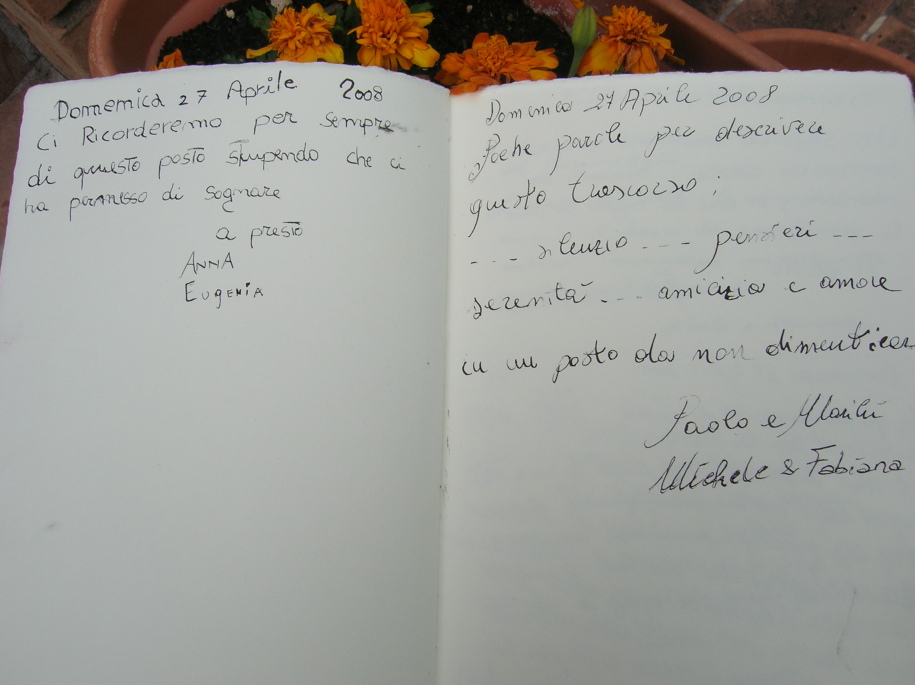 Domenica 27 Aprile 2008
Ci Ricorderemo per sempre
di questo posto stupendo che ci
ha permesso di sognare
a presto
ANNA
EUgENiA
Domenica 27 Aprile 2008
Poche parole per descrivere
questo trascorso ;
.... silenzio .... pensieri ...
serenità ... amicizia e amore
in un posto da non dimenticare
Paolo e Marilù
Michele & Fabiana